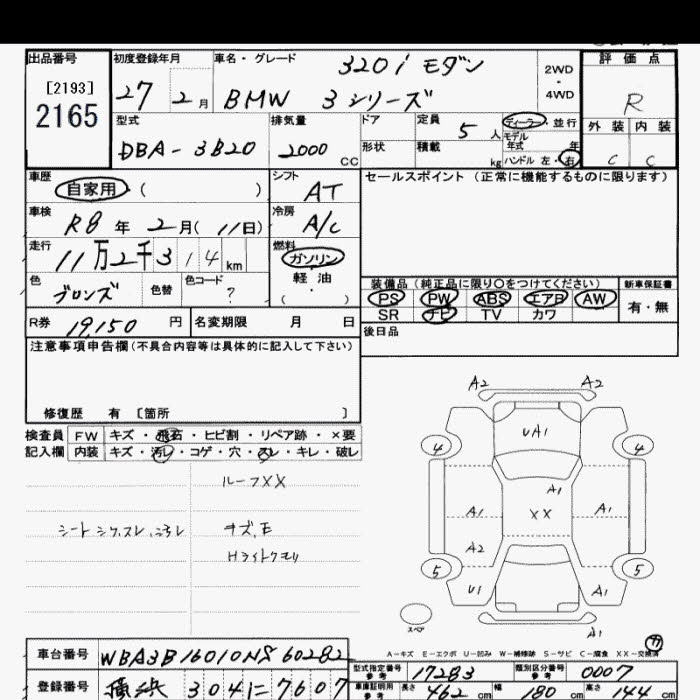 出品番号 初度登録年月 車名・グレード 320i モダン 2WD・4WD 評価点
[2193]
2165 27 2月 BMW 3シリーズ R
型式 排気量 ドア 定員 5人 ディーラー・並行 外装 内装
DBA-3B20 2000cc 形状 積載 kg モデル年式 年 ハンドル 左・右 C C
車歴 自家用 ( ) シフト AT セールスポイント (正常に機能するものに限ります)
車検 R8年 2月(11日) 冷房 A/C
走行 11万2千314km 燃料 ガソリン
軽油
( ・ )
色 ブロンズ 色替 色コード ? 装備品(純正品に限り○をつけてください) 新車保証書
PS PW ABS エアB AW 有・無
R券 19,150円 名変期限 月 日 SR ナビ TV カワ
注意事項申告欄(不具合内容等は具体的に記入して下さい) 後日品
修復歴 有 [箇所 ]
検査員 FW キズ・飛石・ヒビ割・リペア跡・×要
記入欄 内装 キズ・汚レ・コゲ・穴・スレ・キレ・破レ
ルーフXX
シートシワ,スレ,ヨゴレ キズ,E
Hライトクモリ
A2 A2
UA1
4 4
A1
A1 XX A1
A2
5 5
U1 A1
スペア A1
A-キズ E-エクボ U-凹み W-補修跡 S-サビ C-腐食 XX-交換済
車台番号 WBA3B16010NS60282 型式指定番号 参考 17283 類別区分番号 参考 0007
登録番号 横浜 304 に 7607 車庫証明用 参考 長さ 462cm 幅 180cm 高さ 144cm